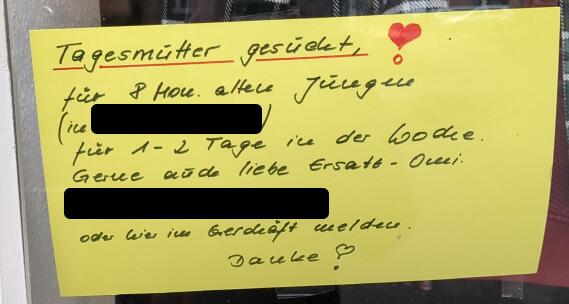 Tagesmütter gesucht,
für 8 Mon. alten Jungen
(in )
für 1-2 Tage in der Woche.
Gerne auch liebe Ersatz-Omi.
oder hier im Geschäft melden.
Danke!